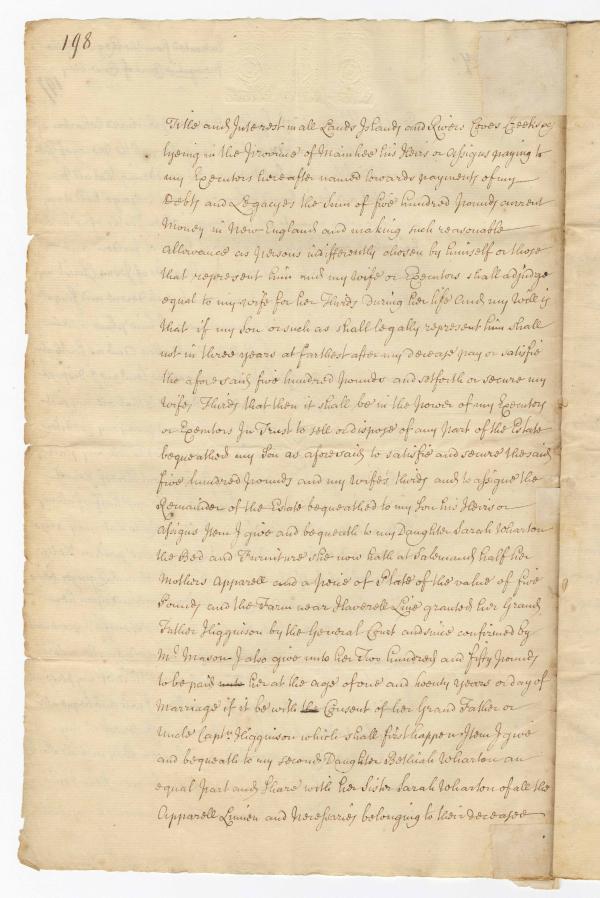 198
Title and Interest in all Lands Islands and Rivers Coves Creeks &c
lyeing in the Province of Mainhee his Heirs or Assigns paying to
my Executors hereafter named towards payments of my
Debts and Legacyes the Sum of five hundred pounds current
Money in New England and making such reasonable
allowance as persons indifferently chosen by himself or those
that represent him and my wife or Executors shall adjudge
equal to my wife for her Thirds During her life And my Will is
that if my Son or such as shall legally represent him shall
not in three years at farthest after my decease pay or satisfie
the aforesaid five hundred pounds and setforth or secure my
wifes Thirds that then it shall be in the power of my Executors
or Executors In Trust to sell or dispose of any part of the Estate
bequeathed my Son as aforesaid to satisfie and secure the said
five hundred pounds and my wife's thirds and to assigne the
Remainder of the Estate bequeathed to my Son his Heirs or
Assigns Item I give and bequeath to my Daughter Sarah Wharton
the Bed and Furniture she now hath at Salem and half her
Mothers Apparell and a peice of Plate of the value of five
Pounds and the Farm near Haverell Line granted her Grand
Father Higginson by the General Court and since confirmed by
Mr. Mason I also give unto her Two hundred and fifty pounds
to be paid unto her at the age of one and twenty years or day of
Marriage if it be with the Consent of her Grand Father or
Uncle Captn. Higginson which shall first happen Item I give
and bequeath to my second Daughter Bethiah Wharton an
equal Part and Share with her Sister Sarah Wharton of all the
Apparell Linnen and Necessaries belonging to their deceased